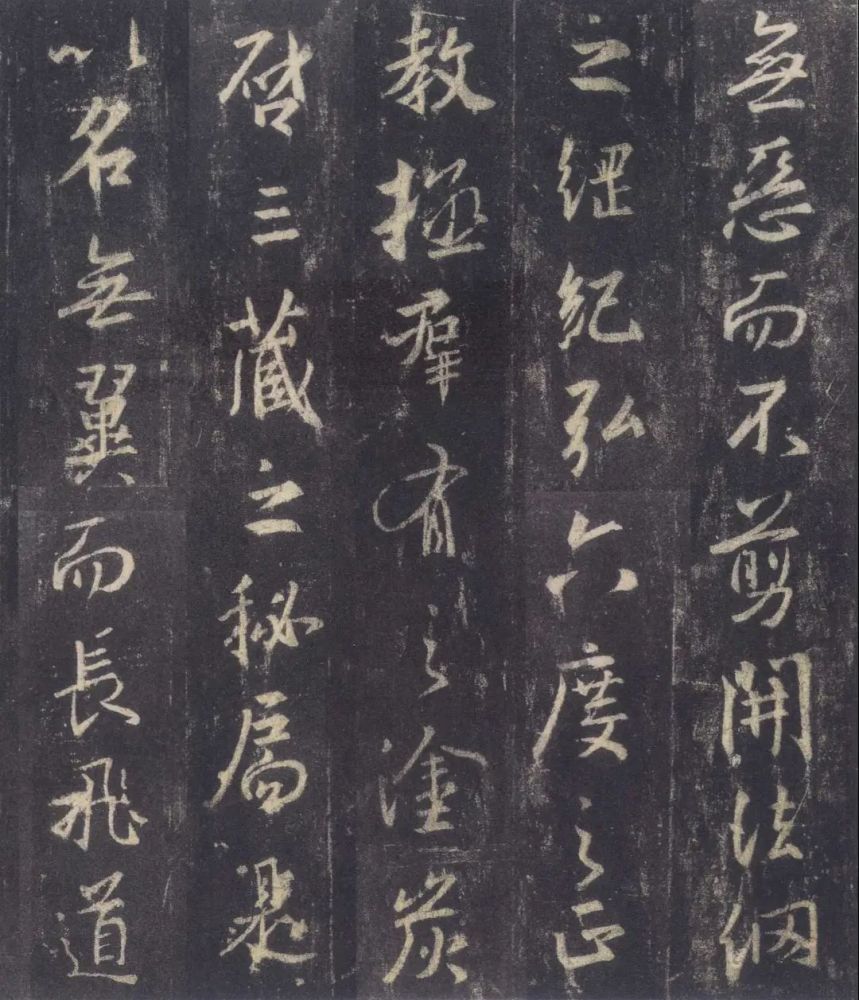 無惡而不剪開法網
之綱紀弘六度之正
教拯羣有之塗炭
啓三藏之秘扃是
以名無翼而長飛道